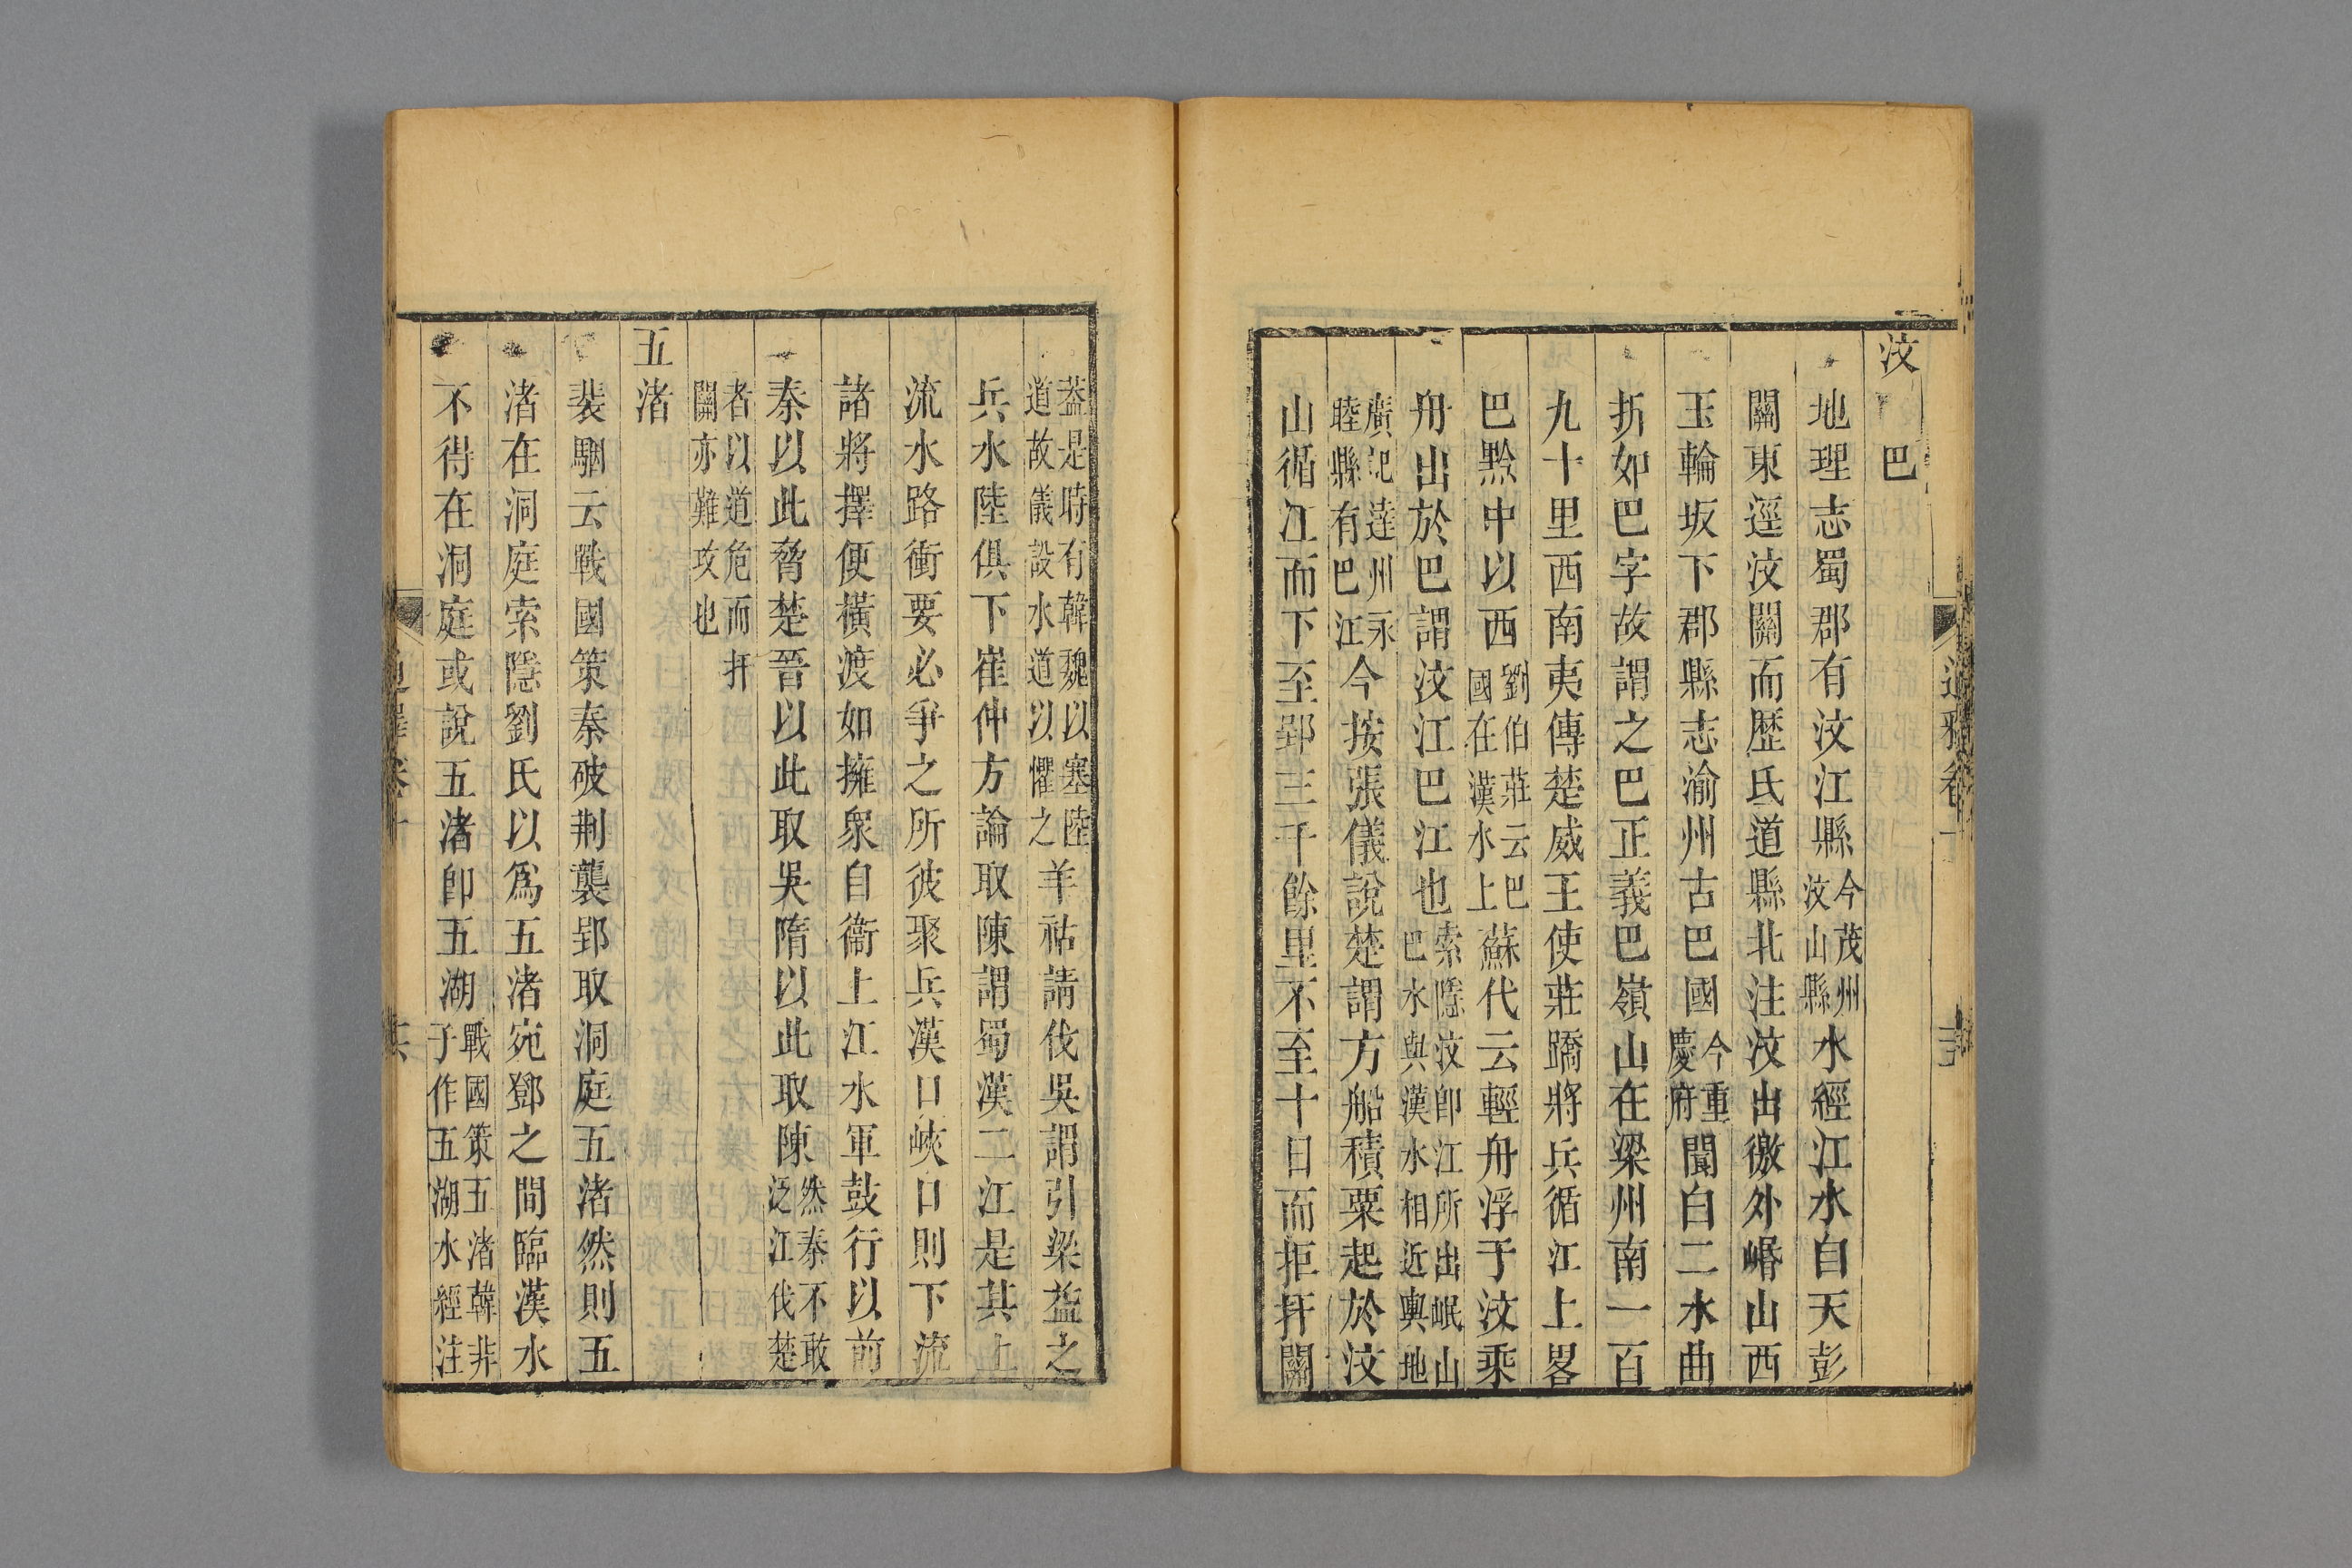 汶 巴
地理志蜀郡有汶江縣今茂州汶山縣水經江水自天彭
關東逕汶關而歷氐道縣北注汶出徼外崏山西
玉輪坂下郡縣志渝州古巴國今重慶府閬白二水曲
折如巴字故謂之巴正義巴嶺山在梁州南一百
九十里西南夷傳楚威王使莊蹻將兵循江上畧
巴黔中以西劉伯莊云巴國在漢水上蘇代云輕舟浮于汶乘
舟出於巴謂汶江巴江也索隱汶卽江所出岷山巴水與漢水相近輿地
廣記達州永睦縣有巴江今按張儀說楚謂方船積粟起於汶
山循江而下至郢三千餘里不至十日而拒扞關
葢是時有韓魏以塞陸道故儀設水道以懼之羊祜請伐吳謂引梁益之
兵水陸俱下崔仲方論取陳謂蜀漢二江是其上
流水路衝要必爭之所彼聚兵漢口峽口則下流
諸將擇便橫渡如擁衆自衞上江水軍鼓行以前
秦以此脅楚晉以此取吳隋以此取陳然秦不敢泛江伐楚
者以道危而扞關亦難攻也
五渚
裴駰云戰國策秦破荆襲郢取洞庭五渚然則五
渚在洞庭索隱劉氏以爲五渚宛鄧之間臨漢水
不得在洞庭或說五渚卽五湖戰國策五渚韓非子作五湖水經注